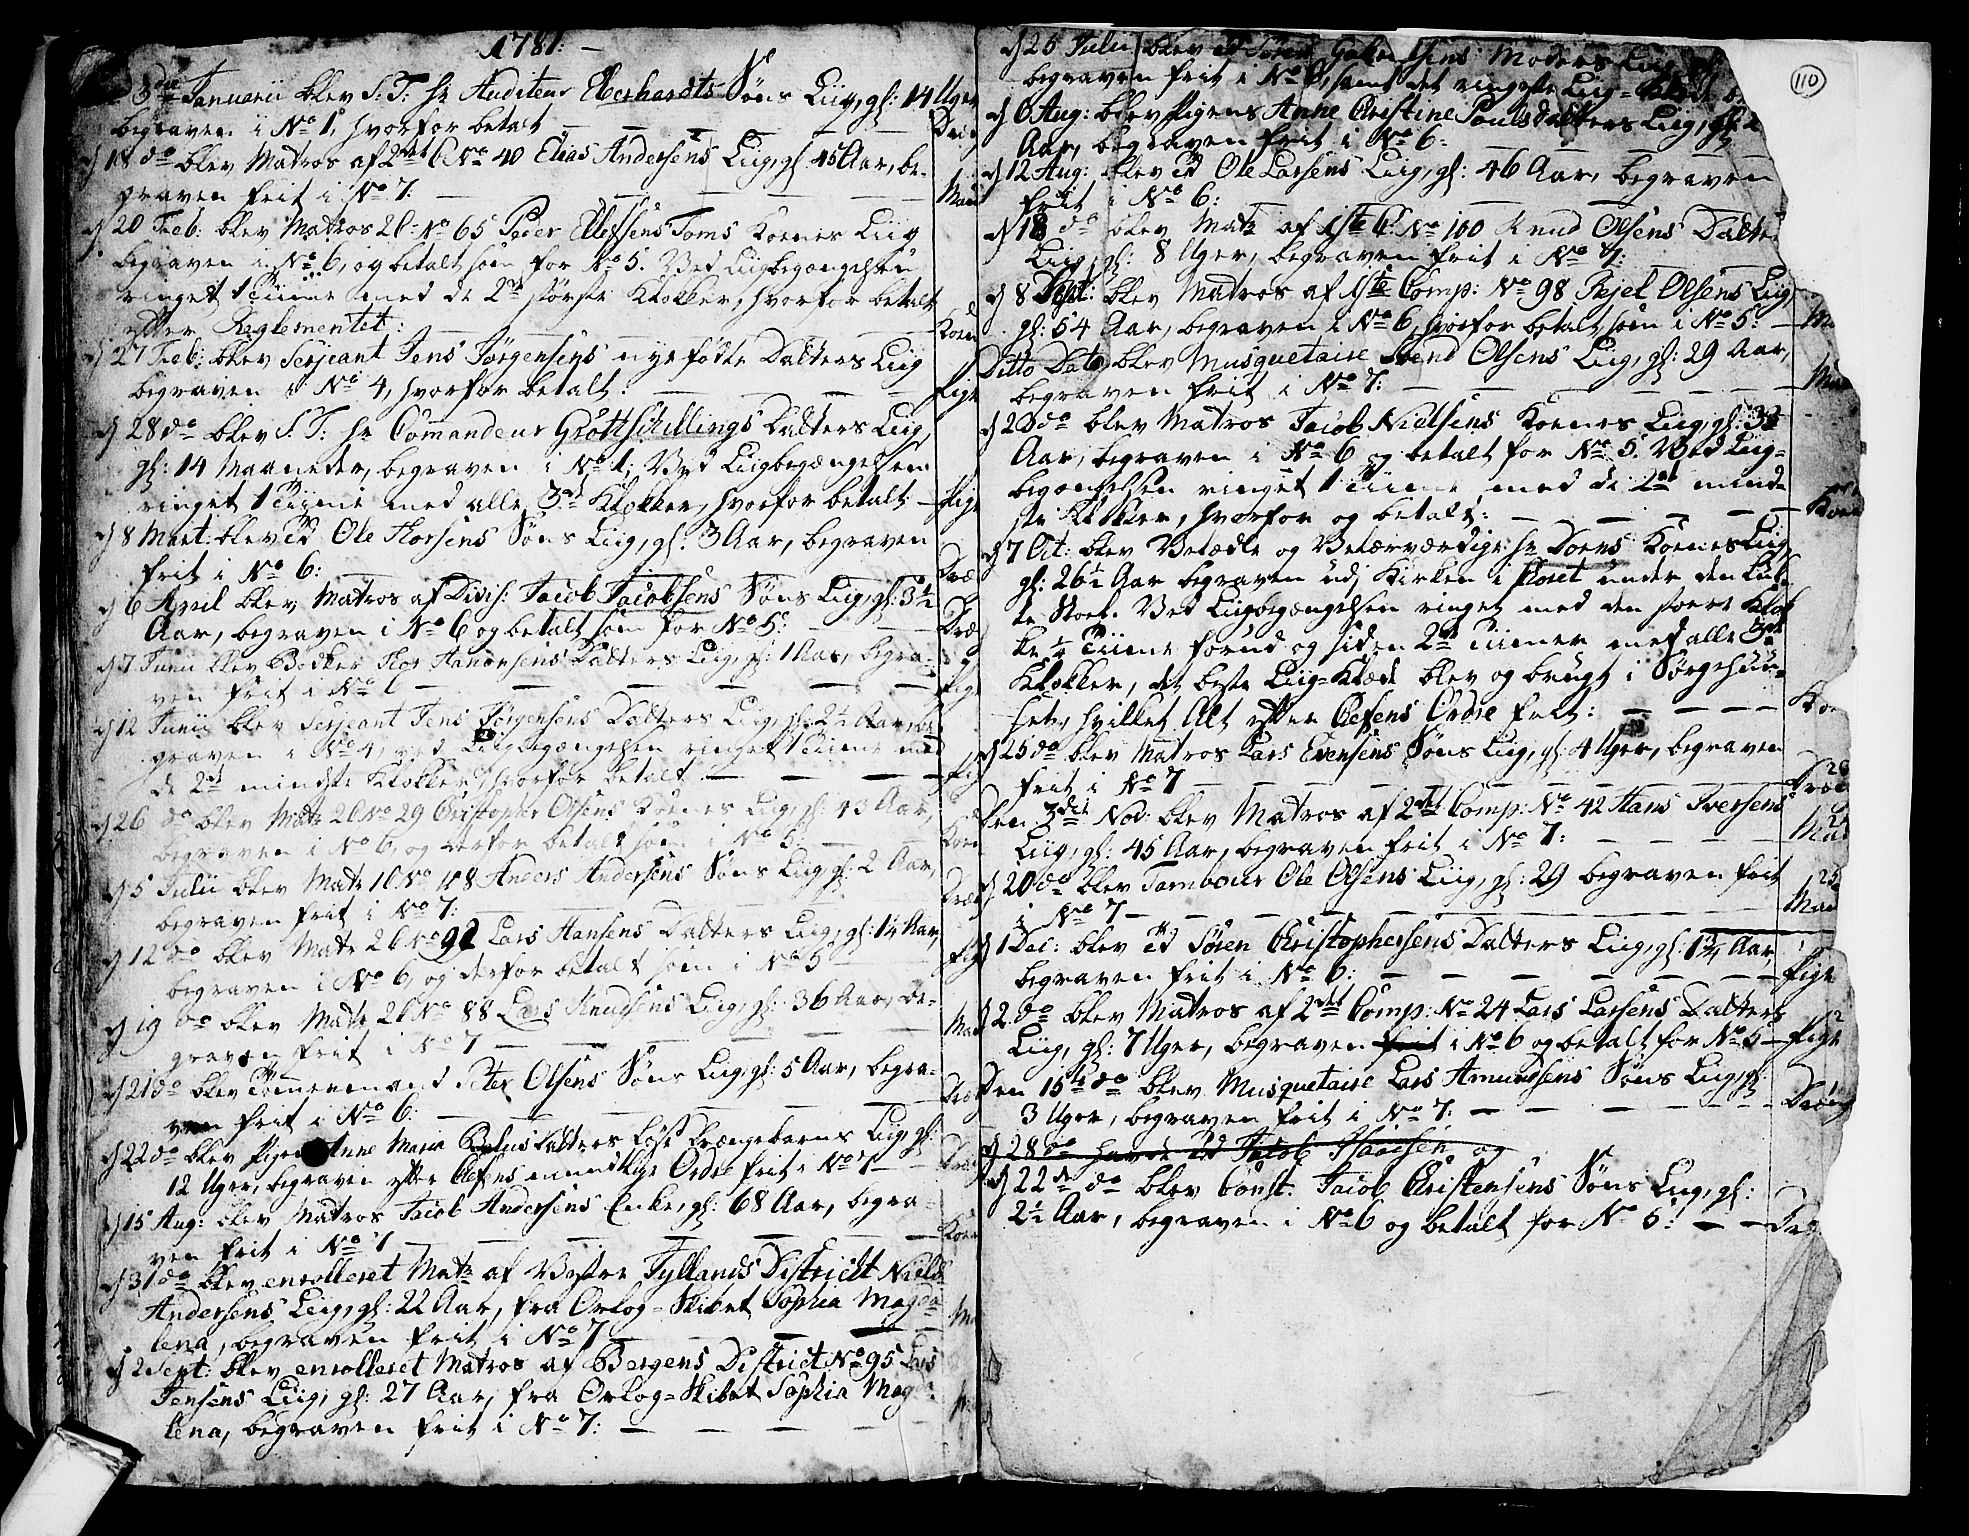 1781:
3die Januarii blev S. T: Hr Auditeur Eberhardts Søns Liig, gl: 14 Uger
begraven i No 1, hvorfor betalt
d 18 do blev Matros af 2det C No 40 Elias Andersens Liig, gl 45 Aar, be-
graven frit i No 7:
d 20 Feb: blev Matros 2C No 65 Peder Ellefsens Koenes Liig
begraven i No 6, og betalt som for No 5. Ved Liigbegængelsen
ringet 1 Tiime med de 2de største Klokker, hvorfor betalt
efter Reglementet:
d 27 Feb: blev Serjeant Jens Jørgensens nye fødte Datters Liig
begraven i No 4, hvorfor betalt:
d 28 do blev S. T: Hr Comandeur Grottschillings Datters Liig,
gl: 14 Maaneder, begraven i No 1; Ved Liigbegængelsen
ringet 1 Tiime med alle 3de Klokker, hvorfor betalt
d 8 Mart: blev Ole Thorsens Søns Liig, gl: 3 Aar, begraven
frit i No 6:
d 6 April blev Matros af Divis: Jacob Jacobsens Søns Liig, gl: 3½
Aar, begraven i No 6 og betalt som for No 5:
d 7 Junii blev Bødker Datters Liig, gl: 1 Aar, begra-
ven frit i No 6
d 12 Junii blev Serjeant Jens Jørgensens Datters Liig, gl: 2½ Aar, be-
graven i No 4, ved Liigbegængelsen ringet 1 Tiime med
de 2de mindste Klokker, hvorfor betalt
d 26 do blev Matr 2C No 29 Christopher Olsens Koenes Liig, gl: 43 Aar,
begraven i No 6, og derfor betalt som i No 5:
d 5 Julii blev Matr 1C No 118 Anders Andersens Søns Liig gl: 2 Aar,
begraven frit i No 7:
d 12 do blev Matr 2C No 92 Lars Hansens Datters Liig, gl: 1¼ Aar,
begraven i No 6, og derfor betalt som i No 5
d 19 do blev Matr 2C No 88 Lars Knudsens Liig, gl: 36 Aar, be-
graven frit i No 7
d 21 do blev Tømermand Peter Olsens Søns Liig, gl: 5 Aar, begra-
ven frit i No 6:
d 22 do blev Pigen Anne Maria Datters løst Drængebarns Liig, gl:
12 Uger, begraven efter Chefens mundtlige Ordre frit i No 7
d 15 Aug: blev Matros Jacob Andersens Enke, gl: 68 Aar, begra-
ven frit i No 7
d 31 do blev enrolleret Matr af Vestre Jyllands District Niels
Andersens Liig, gl: 22 Aar, fra Orlog-Skibet Sophia Magda
lena, begraven frit i No 7
d 2 Sept: blev enrolleret Matros af Bergens District No 95 Lars
Jensens Liig, gl: 27 Aar, fra Orlog-Skibet Sophia Magda
lena, begraven frit i No 7:
110
d 25 Julii blev Moders Liig
begraven frit i No 6, samt det ringeste Liig-
d 6 Aug: blev Pigens Anne Christine Poulsdatters Liig, gl:
Aar, begraven frit i No 6:
d 12 Aug: blev Ole Larsens Liig, gl: 46 Aar, begraven
frit i No 6:
d 18 do blev Matr af 1ste C: No 100 Knud Olsens Datters
Liig, gl: 8 Uger, begraven frit i No 7:
d 8 Sept: blev Matros af 1ste Comp: No 98 Rejel Olsens Liig,
gl: 54 Aar, begraven i No 6, hvorfor betalt som i No 5:
Ditto Dato blev Musquetaire Svend Olsens Liig, gl: 29 Aar,
begraven frit i No 7:
d 28 do blev Matros Jacob Nielsens Koenes Liig, gl: 33
Aar, begraven i No 6 og betalt for No 5. Ved Liig-
begængelsen ringet 1 Tiime, med de 2de minde
ste Klokker, hvorfor og betalt:
d 7 Oct: blev Velædle og Velærværdige Hr Dorns Koenes Liig,
gl: 26½ Aar begraven udi Kirken i Koret under den
Stoel. Ved Liigbegængelsen ringet med den store Klok
ke ½ Tiime forud og siden 2de Tiimer med alle 3de
Klokker, det beste Liig-Klæde blev og brugt i Sørgehuu-
set, hvilket Alt efter Chefens Ordre frit:
d 25 do blev Matros Lars Evensens Søns Liig, gl: 4 Uger, begraven
frit i No 7
Den 3die Nov: blev Matros af 2det Comp: No 42 Hans Iversens
Liig, gl: 45 Aar, begraven frit i No 7:
d 20 do blev Tambour Ole Olsens Liig, gl: 29 begraven frit
i No 7
d 1 Dec: blev Søren Christophersens Datters Liig, gl: 1¾ Aar
begraven frit i No 6:
Pige
d 2 do blev Matros af 2det Comp: No 24 Lars Larsens Datters
Liig, gl: 7 Uger, begraven frit i No 6 og betalt for No 5
Pige
Den 15de do blev Musquetaire Lars Amundsens Søns Liig, gl:
3 Uger, begraven frit i No 7:
Dræng
d 28 do havde Jacob Isaachsen og
d 22de do blev Const. Jacob Christensens Søns Liig, gl:
2½ Aar, begraven i No 6 og betalt for No 5: